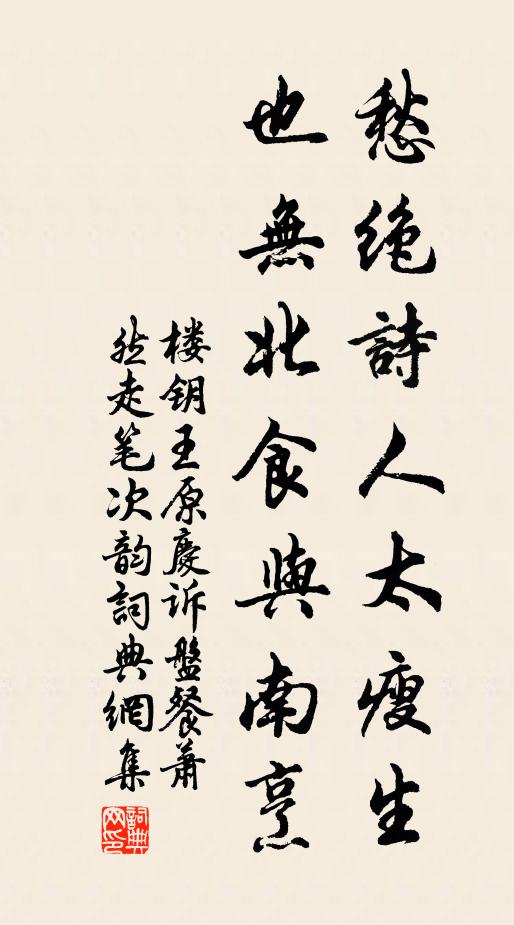 愁绝詩人太瘦生
也無北食與南烹
楼钥王原慶诉盤餐萧
然走笔次韵詞典網集
詞典网印